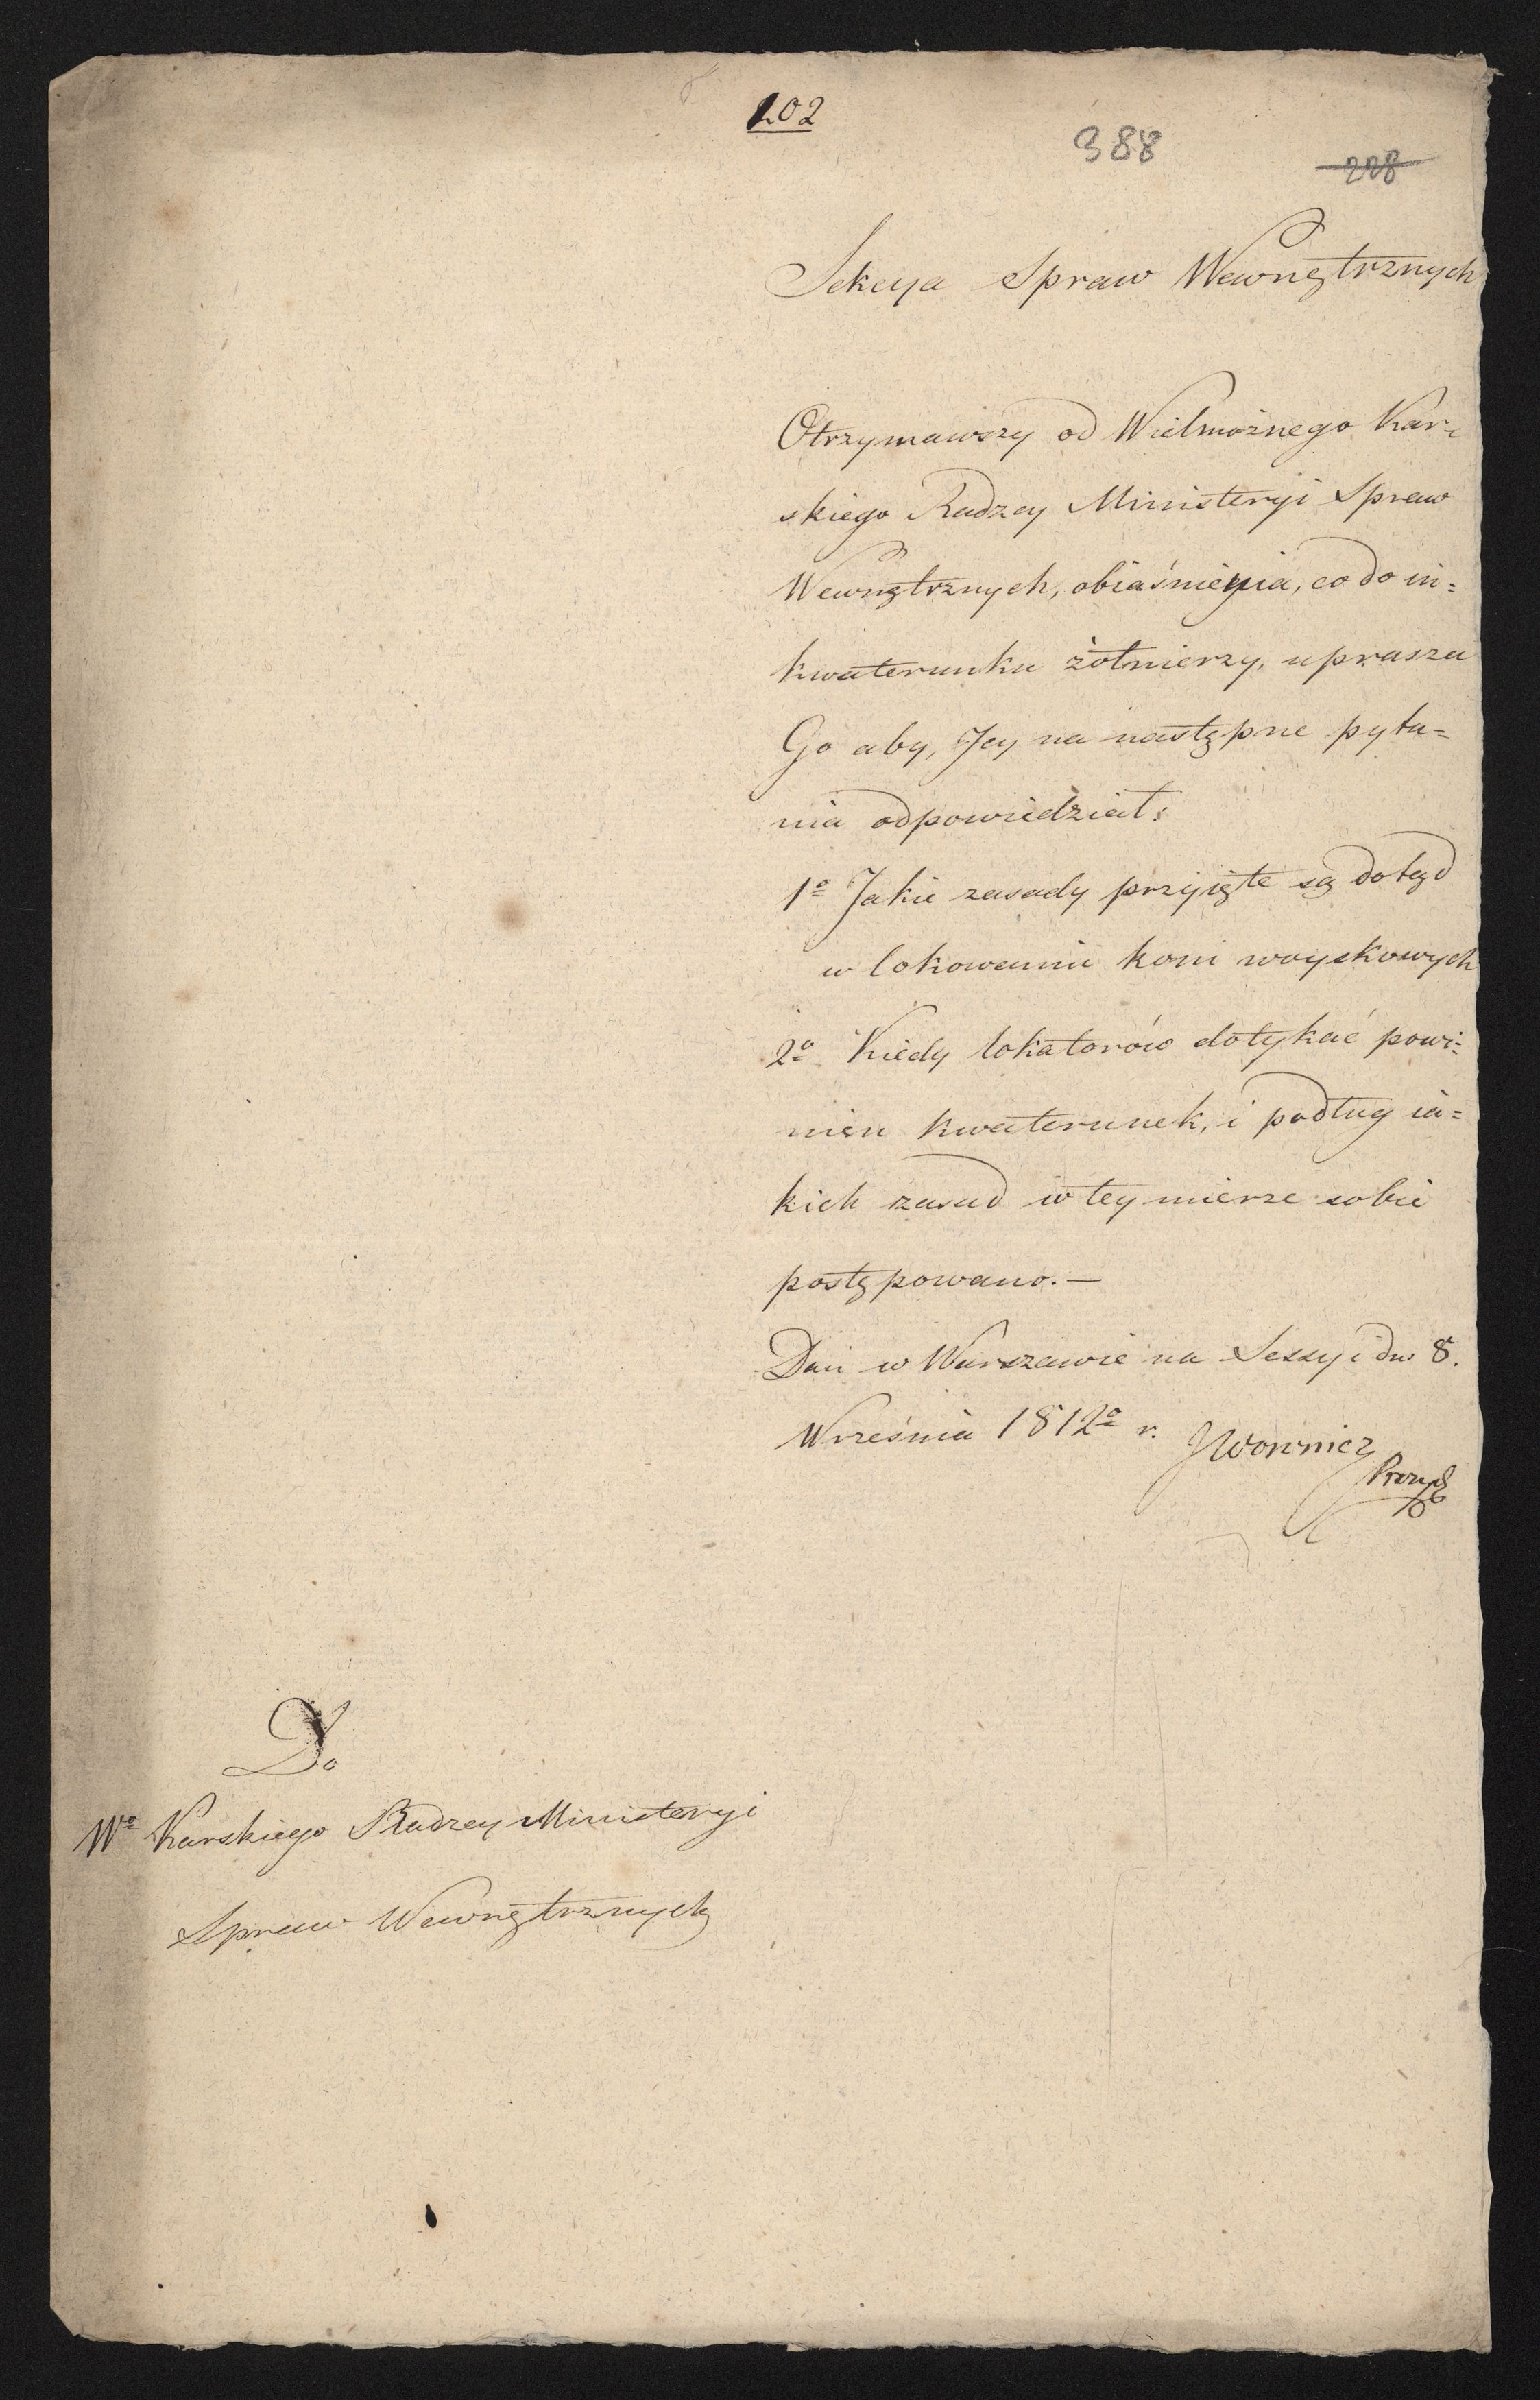 202
388
228
Sekcya Spraw Wewnętrznych
Otrzymawszy od Wielmożnego Kar=
skiego Radzcy Ministeryi Spraw
Wewnętrznych, obiaśnienia, co do in=
kwaterunku żołnierzy, uprasza
Go aby, Jey na następne pyta=
nia odpowiedział:
1º Jakie zasady przyięte są dotąd
w lokowaniu koni woyskowych
2º Kiedy lokatorów dotykać powi=
nien kwaterunek, i podług ia=
kich zasad w tey mierze sobie
postępowano. —
Dan w Warszawie na Sessyi dn. 8.
Września 1812º r. Jwonnicz
Do
Wº Karskiego Radzcy Ministeryi
Spraw Wewnętrznych